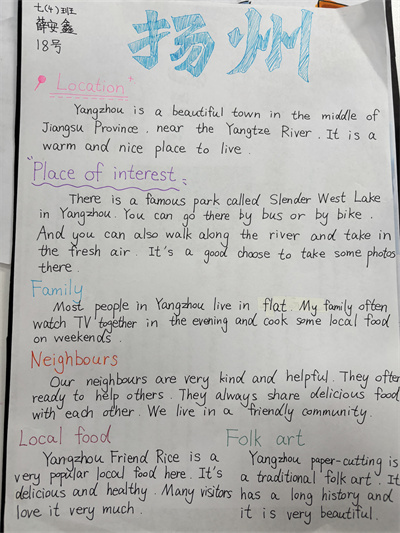 七(4)班
薛安鑫
18号
扬州
Location
Yangzhou is a beautiful town in the middle of
Jiangsu Province, near the Yangtze River. It is a
warm and nice place to live.
"Place of interest"
There is a famous park called Slender West Lake
in Yangzhou. You can go there by bus or by bike.
And you can also walk along the river and take in
the fresh air. It's a good choose to take some photos
there.
Family
Most people in Yangzhou live in flat. My family often
watch TV together in the evening and cook some local food
on weekends.
Neighbours
Our neighbours are very kind and helpful. They often
ready to help others. They always share delicious food
with each other. We live in a friendly community.
Local food
Yangzhou Friend Rice is a
very popular local food here. It's
delicious and healthy. Many visitors
love it very much.
Folk art
Yangzhou paper-cutting is
a traditional folk art. It
has a long history and
it is very beautiful.